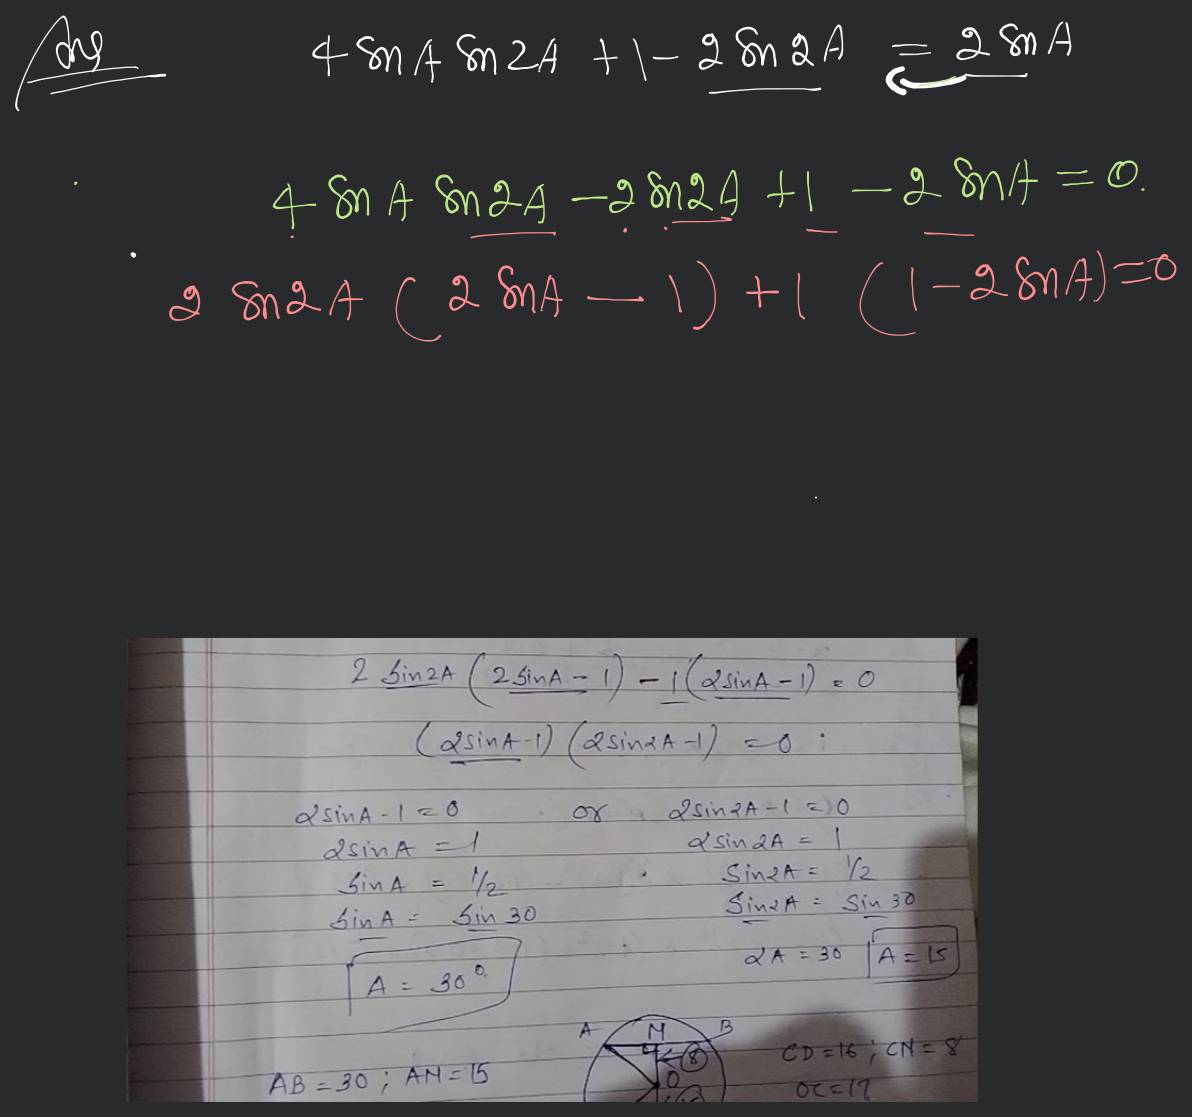 Ans
4 sin A sin 2A + 1 - 2 sin 2A = 2 sin A
4 sin A sin 2A - 2 sin 2A + 1 - 2 sin A = 0.
2 sin 2A ( 2 sin A - 1 ) + 1 ( 1 - 2 sin A ) = 0
2 sin2A ( 2 sinA - 1 ) - 1 ( 2sinA - 1 ) = 0
( 2sinA - 1 ) ( 2sin2A - 1 ) = 0
2sinA - 1 = 0 or 2sin2A - 1 = 0
2sinA = 1 2sin2A = 1
sinA = 1/2 sin2A = 1/2
sinA = sin 30 sin2A = sin 30
A = 30° 2A = 30 A = 15
A M B
8
O
AB = 30 ; AM = 15 CD = 16 ; CN = 8
OC = 17